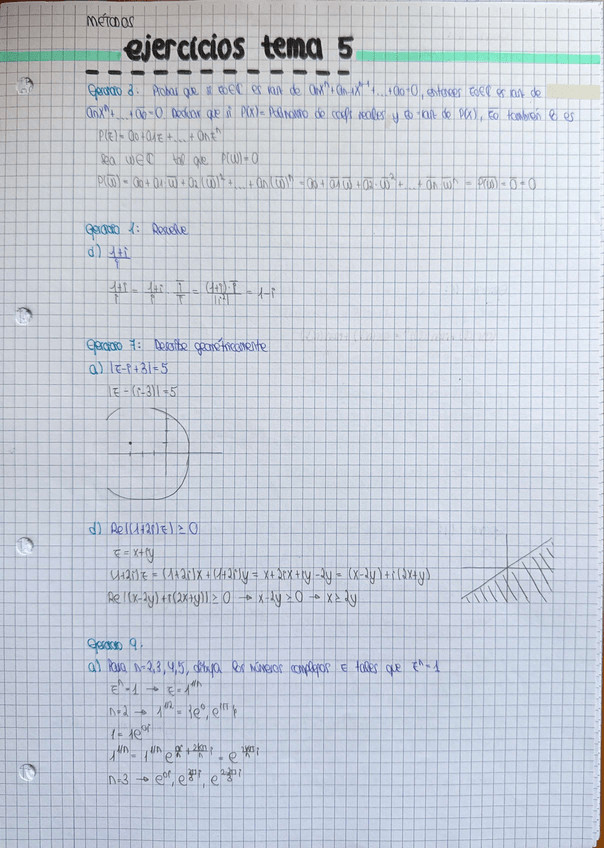 métodos
ejercicios tema 5
Ejercicio 8: Probar que si z0∈ℂ es raíz de anx^n+an-1x^n-1+...+a0=0, entonces z̄0∈ℂ es raíz de
ānx^n+...+ā0=0. Deducir que si P(x)= Polinomio de coefs reales y z0 raíz de P(x), z̄0 también lo es
P(z)=a0+a1z+...+anz^n
Sea w∈ℂ tal que P(w)=0
P(w̄)=a0+a1·w̄+a2(w̄)²+...+an(w̄)^n = ā0+ā1w̄+ā2·w̄²+...+ān w̄^n = P(w)‾=0̄=0
Ejercicio 1: Resuelve
d) 1+i/i
1+i/i = 1+i/i · ī/ī = (1+i)·ī/|i²| = 1-i
Ejercicio 7: Describe geométricamente
a) |z-i+3|=5
|z-(i-3)|=5
d) Re((1+2i)z)≥0
z=x+iy
(1+2i)z=(1+2i)x+(1+2i)iy=x+2ix+iy-2y=(x-2y)+i(2x+y)
Re((x-2y)+i(2x+y))≥0 → x-2y≥0 → x≥2y
Ejercicio 9.
a) Para n=2,3,4,5, dibuja los números complejos z tales que z^n=1
z^n=1 → z=1^1/n
n=2 → 1^1/2 = {e^0, e^iπ}
1=1e^0i
1^1/n = 1^1/n e^(0i/n + 2kπ/n i) = e^(2kπ/n i)
n=3 → e^0i, e^(2π/3 i), e^(2·2π/3 i)